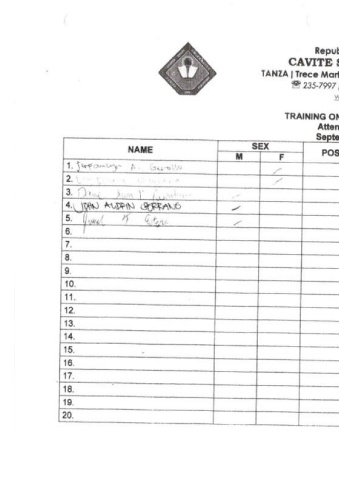 Repub
CAVITE S
TANZA | Trece Mart
☏ 235-7997
TRAINING ON
Atten
Septe
NAME SEX POS
M F
1.
2.
3.
4. JOHN AUDRIN SERRANO
5.
6.
7.
8.
9.
10.
11.
12.
13.
14.
15.
16.
17.
18.
19.
20.